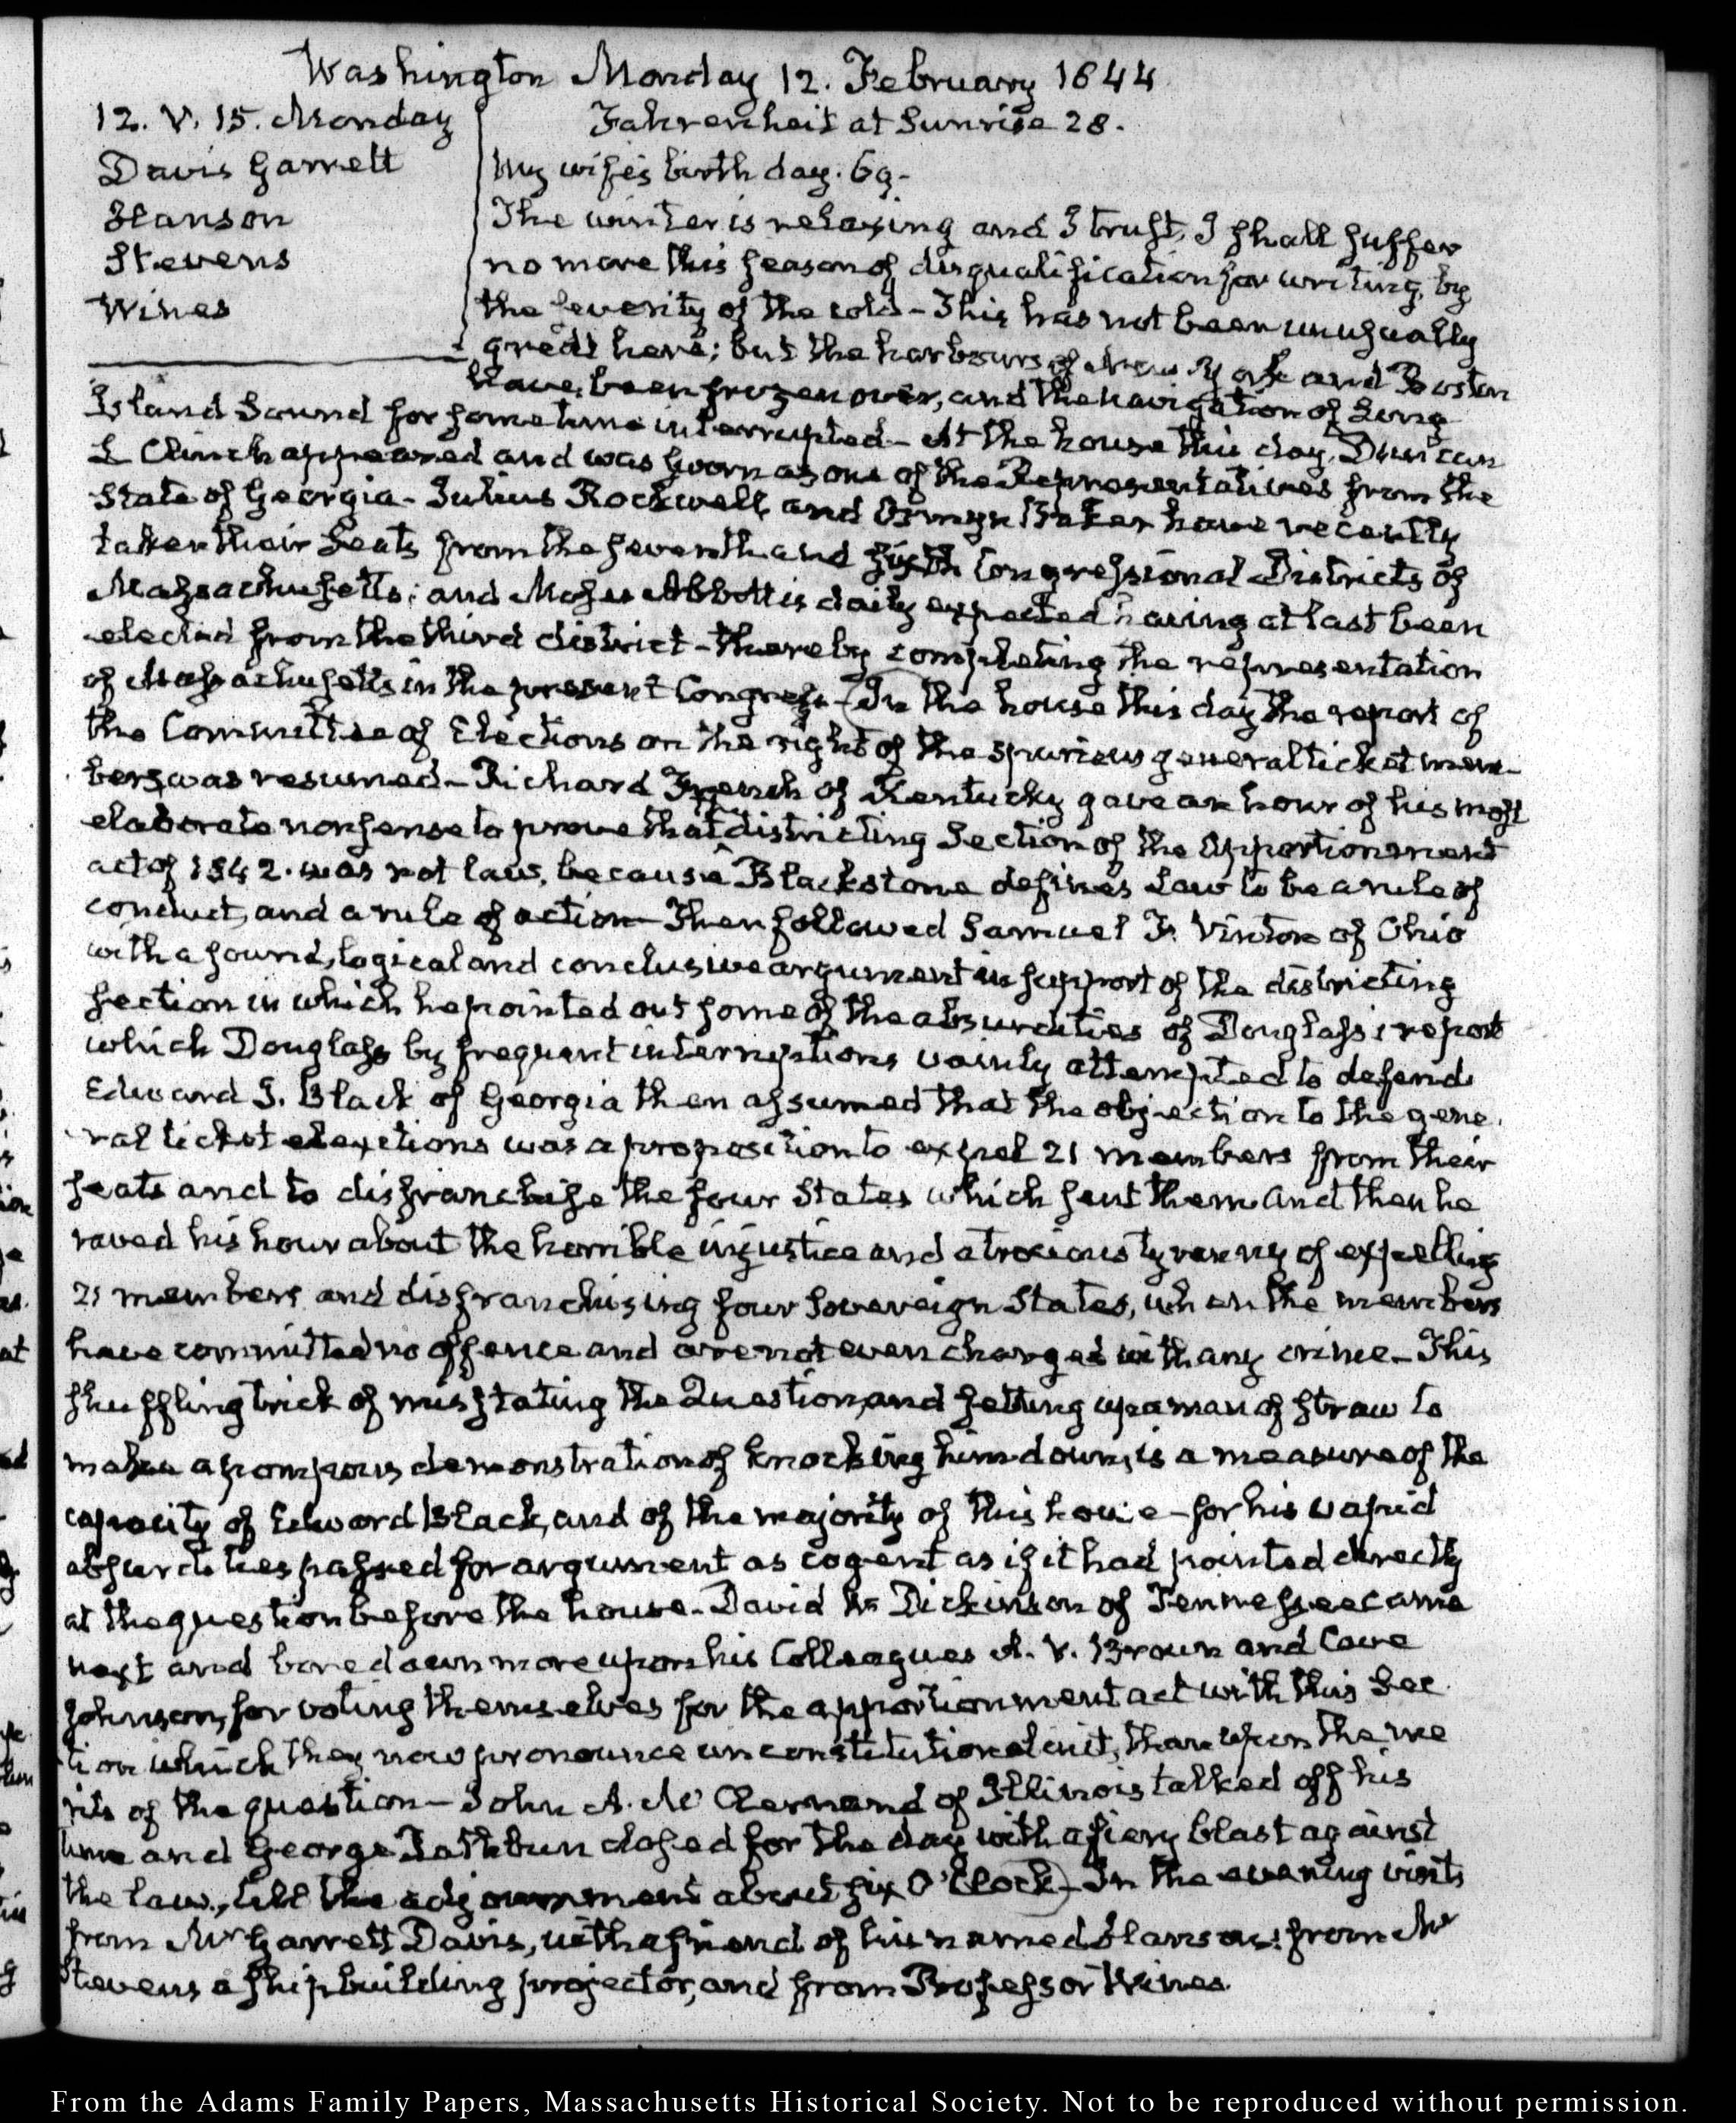 Washington Monday 12. February 1844
12. V. 15. Monday
Davis Garrett
Hanson
Stevens
Wines
Fahrenheit at Sunrise 28.
My wife's birth day. 69.
The winter is relaxing and I trust, I shall suffer
no more this season of disqualification for writing, by
the severity of the cold – This has not been unusually
great here; but the harbours of New York and Boston
have been frozen over, and the navigation of Long
Island Sound for some time interrupted – At the house this day, Duncan
L Clinch appeared and was sworn as one of the Representatives from the
State of Georgia – Julius Rockwell, and Osmyn Baker have recently
taken their Seats from the seventh and sixth Congressional Districts of
Massachusetts; and Abbott is daily expected having at last been
elected from the third district – thereby completing the representation
of Massachusetts in the present Congress – (In the house this day the report of
the Committee of Elections on the right of the spurious general ticket mem-
bers was resumed – Richard French of Kentucky gave an hour of his most
elaborate nonsense to prove that districting Section of the Apportionment
act of 1842. was not law, because Blackstone defines Law to be a rule of
conduct, and a rule of action – Then followed Samuel F. Vinton of Ohio
with a sound, logical and conclusive argument in support of the districting
section in which he pointed out some of the absurdities of Douglass's report
which Douglass by frequent interruptions vainly attempted to defend
Edward J. Black of Georgia then assumed that the objection to the gene-
ral ticket elections was a proposition to expel 21 members from their
seats and to disfranchise the four States which sent them and then he
raved his hour about the horrible injustice and atrocious tyranny of expelling
21 members and disfranchising four Sovereign States, when the members
have committed no offence and are not even charged with any crime – This
shuffling trick of misstating the Question, and setting up a man of straw to
make a pompous demonstration of knocking him down, is a measure of the
capacity of Edward Black, and of the majority of this house – for his vapid
absurdities passed for argument as cogent as if it had pointed directly
at the question before the house – David W Dickinson of Tennessee came
next and bore down more upon his Colleagues A. V. Brown and Cave
Johnson, for voting themselves for the apportionment act with this Sec-
tion which they now pronounce unconstitutional in it, than upon the me
rits of the question – John A. McClernand of Illinois talked off his
time and George Rathbun closed for the day with a fiery blast against
the law, till the adjournment about six O'Clock) – In the evening visits
from Mr Garrett Davis, with a friend of his named Hanson: from Mr
Stevens a ship building projector, and from Professor Wines.
From the Adams Family Papers, Massachusetts Historical Society. Not to be reproduced without permission.